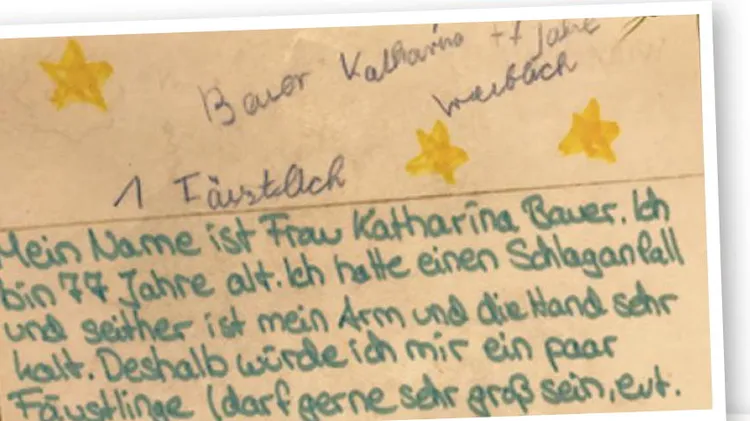 Bauer Katharina 77 Jahre
weiblich
1 Fäustlich
Mein Name ist Frau Katharina Bauer. Ich
bin 77 Jahre alt. Ich hatte einen Schlaganfall
und seither ist mein Arm und die Hand sehr
kalt. Deshalb würde ich mir ein paar
Fäustlinge (darf gerne sehr groß sein, evt.